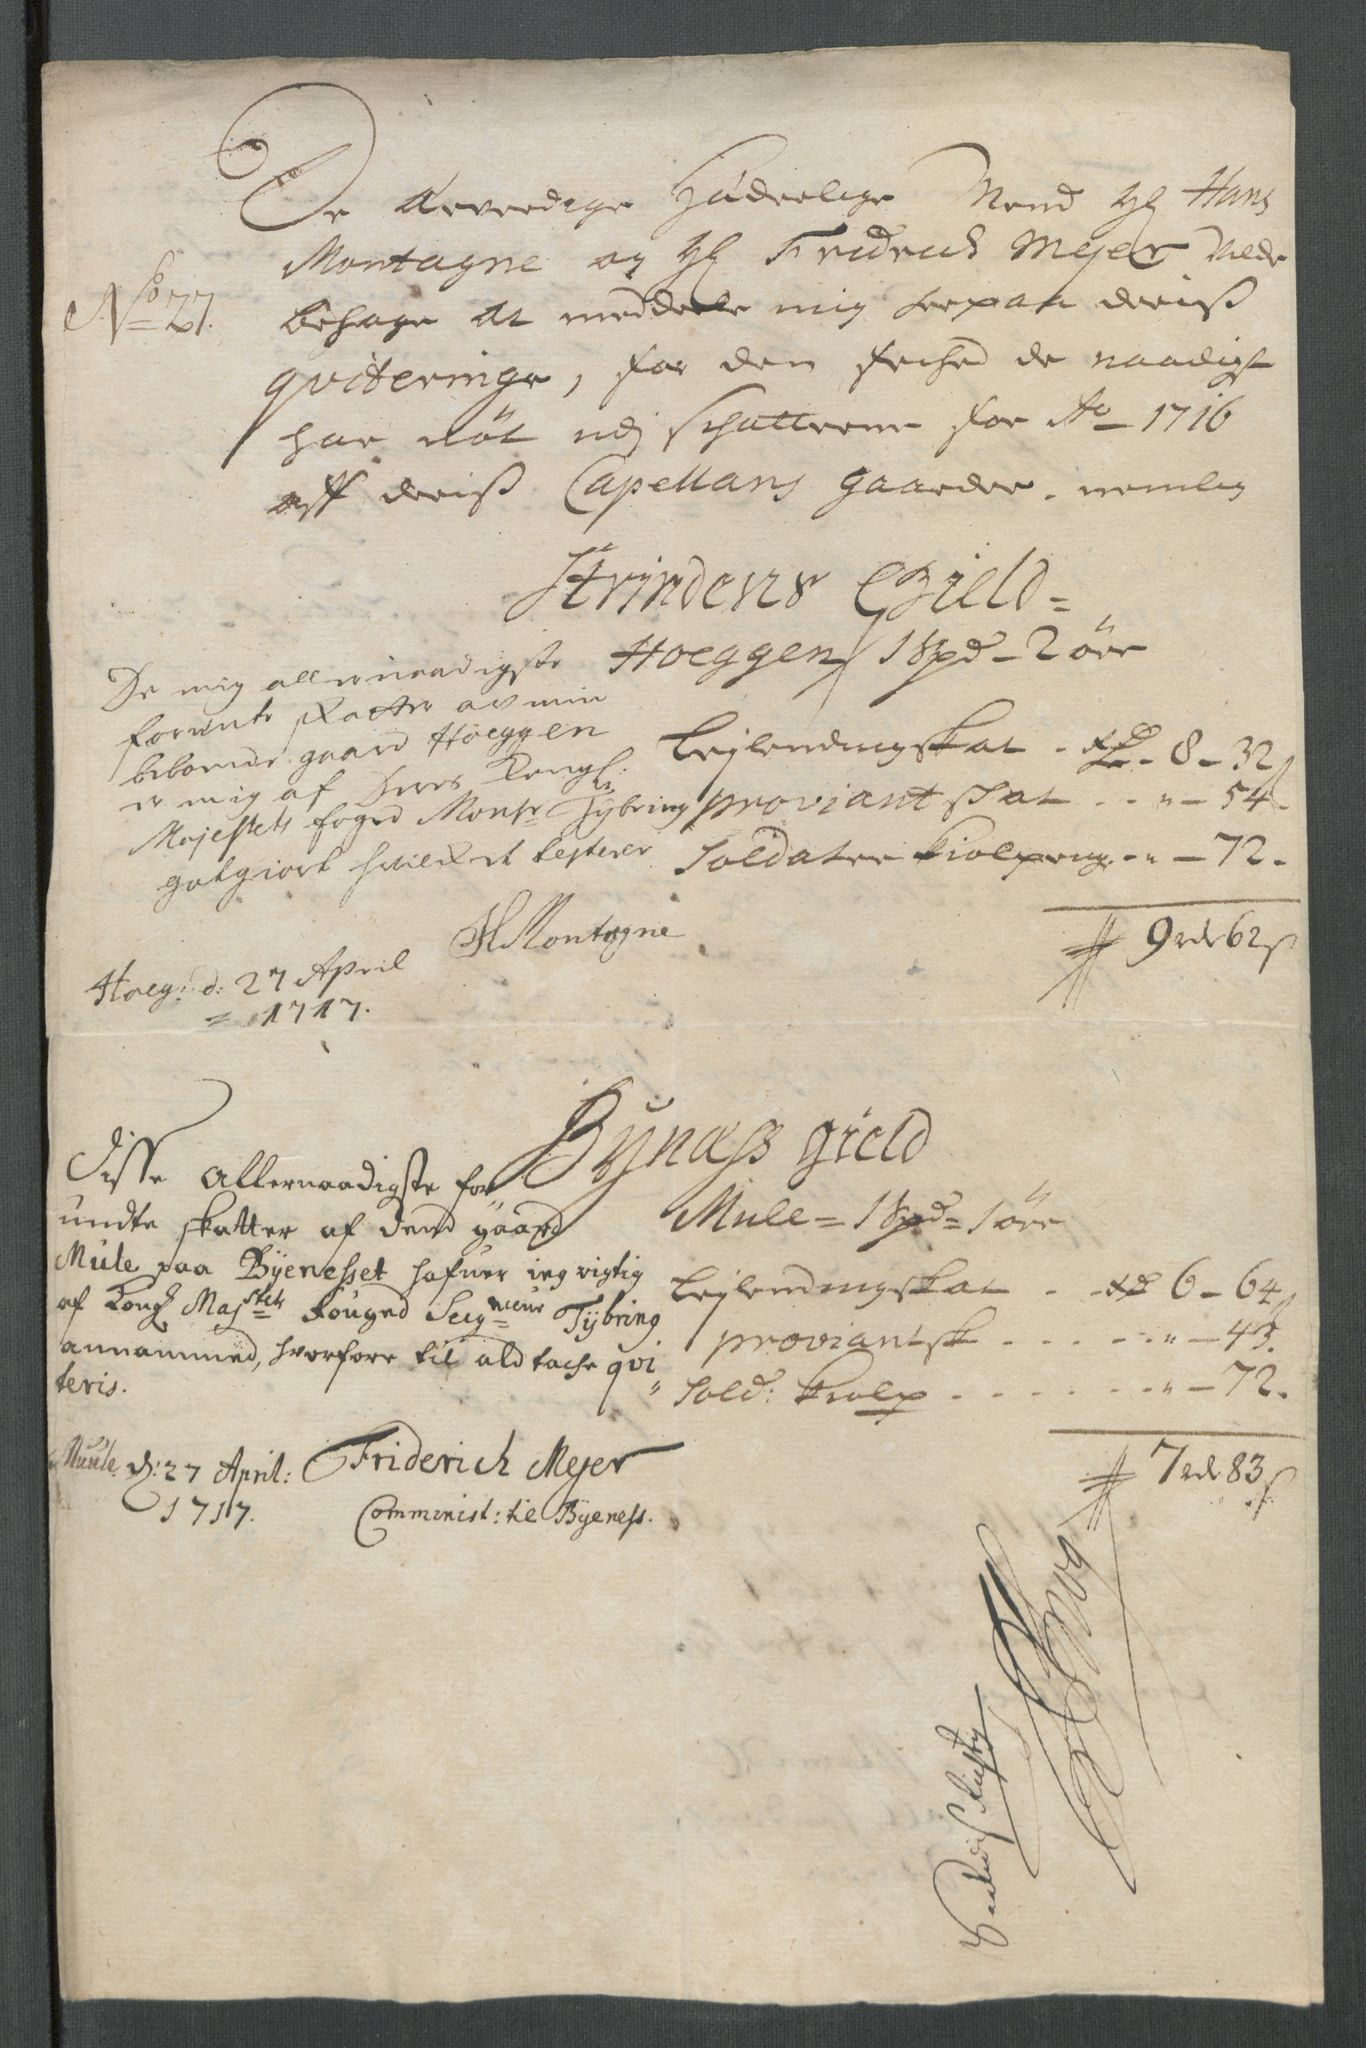 De Ærverdige Hæderlige Mend Hr Hans
Montagne og Hr Fridrich Mejer vilde
No 27.
behage at meddeele mig herpaa deriß
qviteringe, for den frihed de naadigst
har nöt udj Schatterne for Ao 1716
aff deriß Capellans gaarder. nemlig
Strindens Gield =
Hoeggen 1 Spd - 2 öre
Lejlendingskat - rdr 8 - 32 s
proviant skat . . " - 54 -
Soldater kiolpeng - " - 72 -
9 rdr 62 s
De mig allernaadigste
forundte skatter av min
beboende gaard Höeggen
er mig af Hees Kongl:
Majestets foged Monsr Tÿbring
godgiort hvilket testerer
HMontagne
Hoeg: d: 27 April
= 1717.
Bynæss gield
Mule = 1 Spd = 1 öre
Lejlendingskat - rdr 6 - 64 s
proviantsk - . . . " - 43.
Sold: kiolp - . . . . " - 72.
7 rdr 83 s
Disse allernaadigste for
undte skatter af dend gaard
Mule paa Bÿenesset hafuer ieg rigtig
af Kongl Majstets Fouged Seigneur Tÿbring
annammed, hvorfore til ald tache qvi
teris.
Muule d: 27 April: Friderich Mejer
1717. Comminist: til Bÿeness.